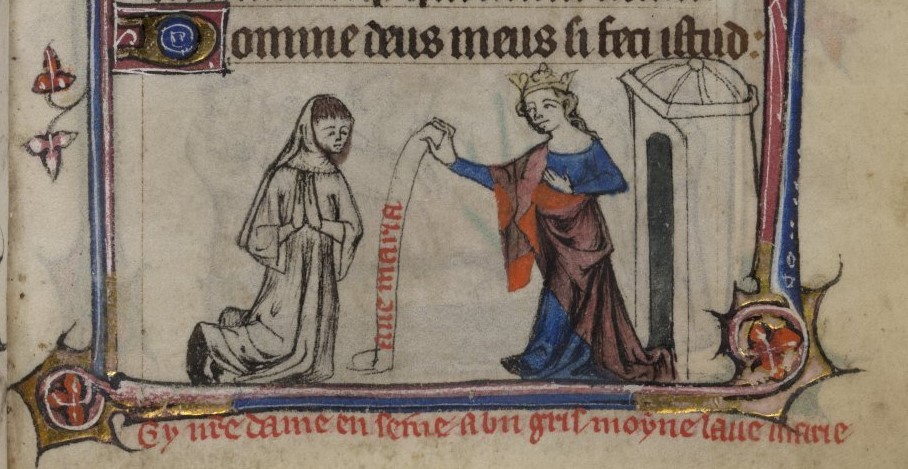 Domine deus meus si feci istud:
aue maria
Cy nre dame enseine a un gris moyne laue marie